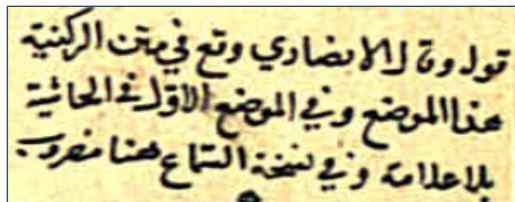 قوله وقال الانصاري وقع في متن الركنية
هذا الموضع وفي الموضع الاول في الحاشية
بلا علامة وفي نسخة السماع هنا مضروب